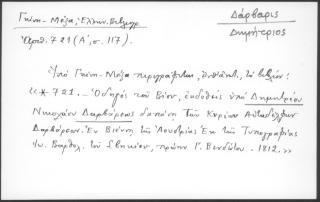 Γκίνη - Μέξα, Ἑλλην. Βιβλιογρ.
Ἀριθ. 721 (Α', σ. 117).
Δάρβαρις
Δημήτριος
Ὑπὸ Γκίνη - Μέξα περιγράφεται, τὸ βιβλίον:
«*721. Ὁδηγὸς τοῦ Βίου, ἐκδοθεὶς ὑπὸ Δημητρίου
Νικολάου Δαρβάρεως δαπάνῃ τῶν Κυρίων Αὐταδέλφων
Δαρβάρεων. Ἐν Βιέννῃ τῆς Ἀουστρίας Ἐκ τῆς Τυπογραφίας
Ἰω. Βαρθολ. τοῦ Σβεκίου, πρώην Γ. Βενδώτου. 1812.»